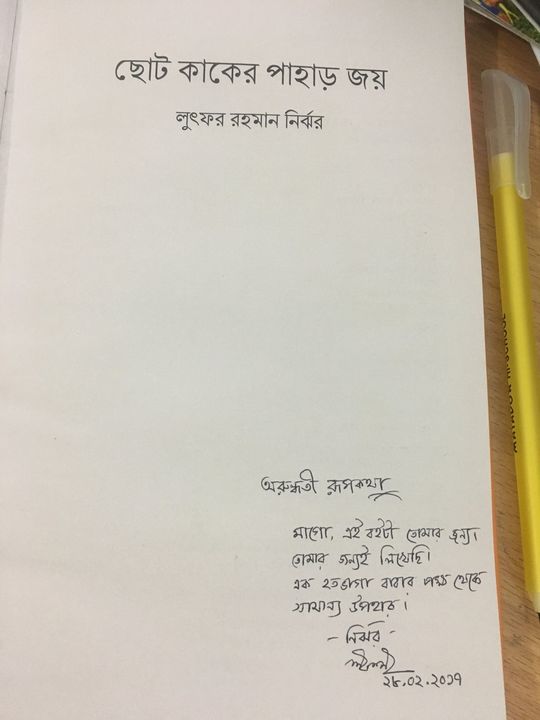 ছোট কাকের পাহাড় জয়
লুৎফর রহমান নির্ঝর
অরুন্ধতী রূপকথা
মাগো, এই বইটা তোমার জন্য।
তোমার জন্যই লিখেছি।
এক হতভাগা বাবার পক্ষ থেকে
সামান্য উপহার।
- নির্ঝর -
২৮.০২.২০১৭
MATADOR HI-SCHOOL